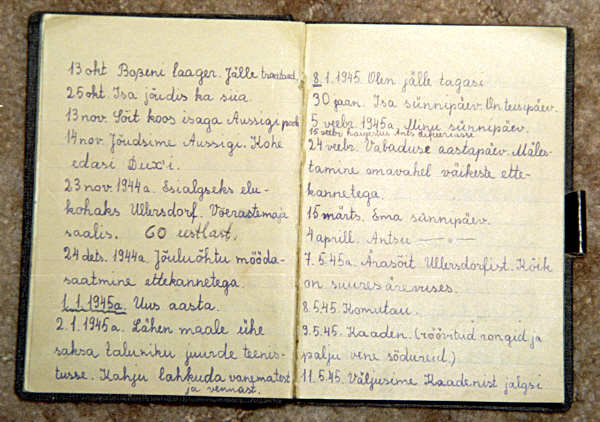 13 okt Bozeni laager. Jälle traataed.
25 okt. Isa jõudis ka siia.
13 nov. Sõit koos isaga Aussigi poole
14 nov. Jõudsime Aussigi. Kohe
edasi Dux'i.
23 nov. 1944 a. Esialgseks elu-
kohaks Ullersdorf. Võerastemaja
saalis. 60 eestlast.
24 dets. 1944a. Jõuluõhtu mööda-
saatmine ettekannetega.
1.1.1945a. Uus aasta.
2.1.1945 a. Lähen maale ühe
saksa taluniku juurde teenis-
tusse. Kahju lahkuda vanematest
ja vennast.
8.1.1945. Olen jälle tagasi
30 jaan. Isa sünnipäev. On teisipäev.
5 veebr. 1945a. Minu sünnipäev.
15 veebr. haigestus Ants difteeriasse
24 veebr. Vabaduse aastapäev. Mäles-
tamine omavahel väikeste ette-
kannetega.
15 märts. Ema sünnipäev.
4 aprill. Antsu — " —
7.5.45a. Ärasõit Ullersdorfist. Kõik
on suures ärevuses.
8.5.45. Komutau.
9.5.45. Kaaden. (röövitud rongid ja
palju vene sõdureid.)
11.5.45. Väljusime Kaadenist jalgsi